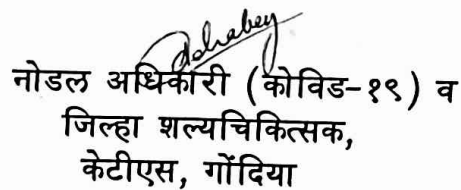 नोडल अधिकारी (कोविड-१९) व
जिल्हा शल्यचिकित्सक,
केटीएस, गोंदिया